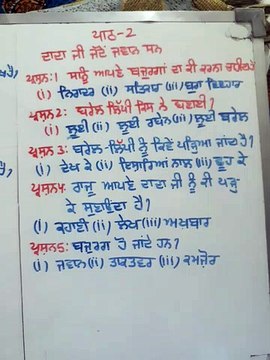 ਪਾਠ-2
ਦਾਦਾ ਜੀ ਜਦੋਂ ਜਵਾਨ ਸਨ
ਪ੍ਰਸ਼ਨ:1 ਸਾਨੂੰ ਆਪਣੇ ਬਜ਼ੁਰਗਾਂ ਦਾ ਕੀ ਕਰਨਾ ਚਾਹੀਦਾ ਹੈ?
(i) ਨਿਰਾਦਰ (ii) ਸਤਿਕਾਰ (iii) ਬੁਰਾ ਵਿਵਹਾਰ
ਪ੍ਰਸ਼ਨ2: ਬਰੇਲ ਲਿੱਪੀ ਕਿਸ ਨੇ ਬਣਾਈ?
(i) ਲੂਈ (ii) ਲੂਈ ਰਬੇਨ (iii) ਲੂਈ ਬਰੇਲ
ਪ੍ਰਸ਼ਨ 3: ਬਰੇਲ ਲਿੱਪੀ ਨੂੰ ਕਿਵੇਂ ਪੜ੍ਹਿਆ ਜਾਂਦਾ ਹੈ?
(i) ਦੇਖ ਕੇ (ii) ਇਸ਼ਾਰਿਆਂ ਨਾਲ (iii) ਛੂਹ ਕੇ
ਪ੍ਰਸ਼ਨ4: ਰਾਜੂ ਆਪਣੇ ਦਾਦਾ ਜੀ ਨੂੰ ਕੀ ਪੜ੍ਹ
ਕੇ ਸੁਣਾਉਂਦਾ ਹੈ?
(i) ਕਹਾਣੀ (ii) ਲੇਖ (iii) ਅਖਬਾਰ
ਪ੍ਰਸ਼ਨ5: ਬਜ਼ੁਰਗ ਹੋ ਜਾਂਦੇ ਹਨ?
(i) ਜਵਾਨ (ii) ਤਾਕਤਵਰ (iii) ਕਮਜ਼ੋਰ